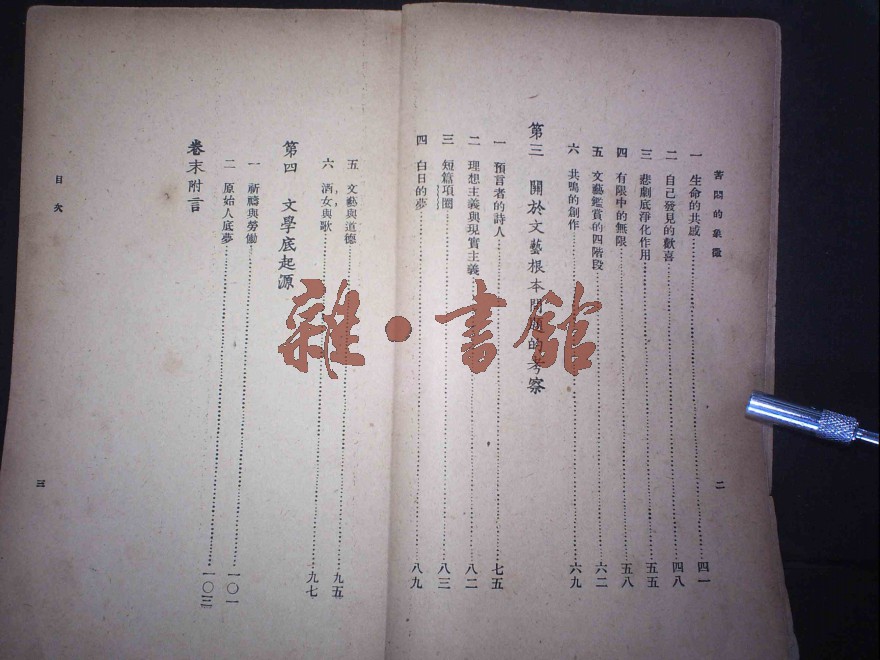 苦悶的象徵
一 生命的共感 四一
二 自己發見的歡喜 四八
三 悲劇底淨化作用 五五
四 有限中的無限 五八
五 文藝鑑賞的四階段 六二
六 共鳴的創作 六九
第三 關於文藝根本問題的考察
一 預言者的詩人 七五
二 理想主義與現實主義 八二
三 短篇項圈 八三
四 白日的夢 八九
二
五 文藝與道德 九五
六 酒女與歌 九七
第四 文學底起源
一 祈禱與勞働 一〇一
二 原始人底夢 一〇三
卷末附言
目次
三
雜·書館